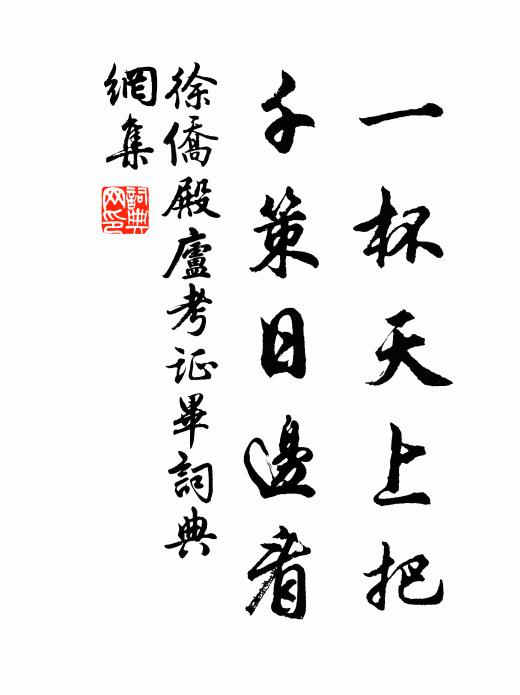 一杯天上把
千策日邊看
徐僑殿廬考证畢詞典
網集
詞典
网印